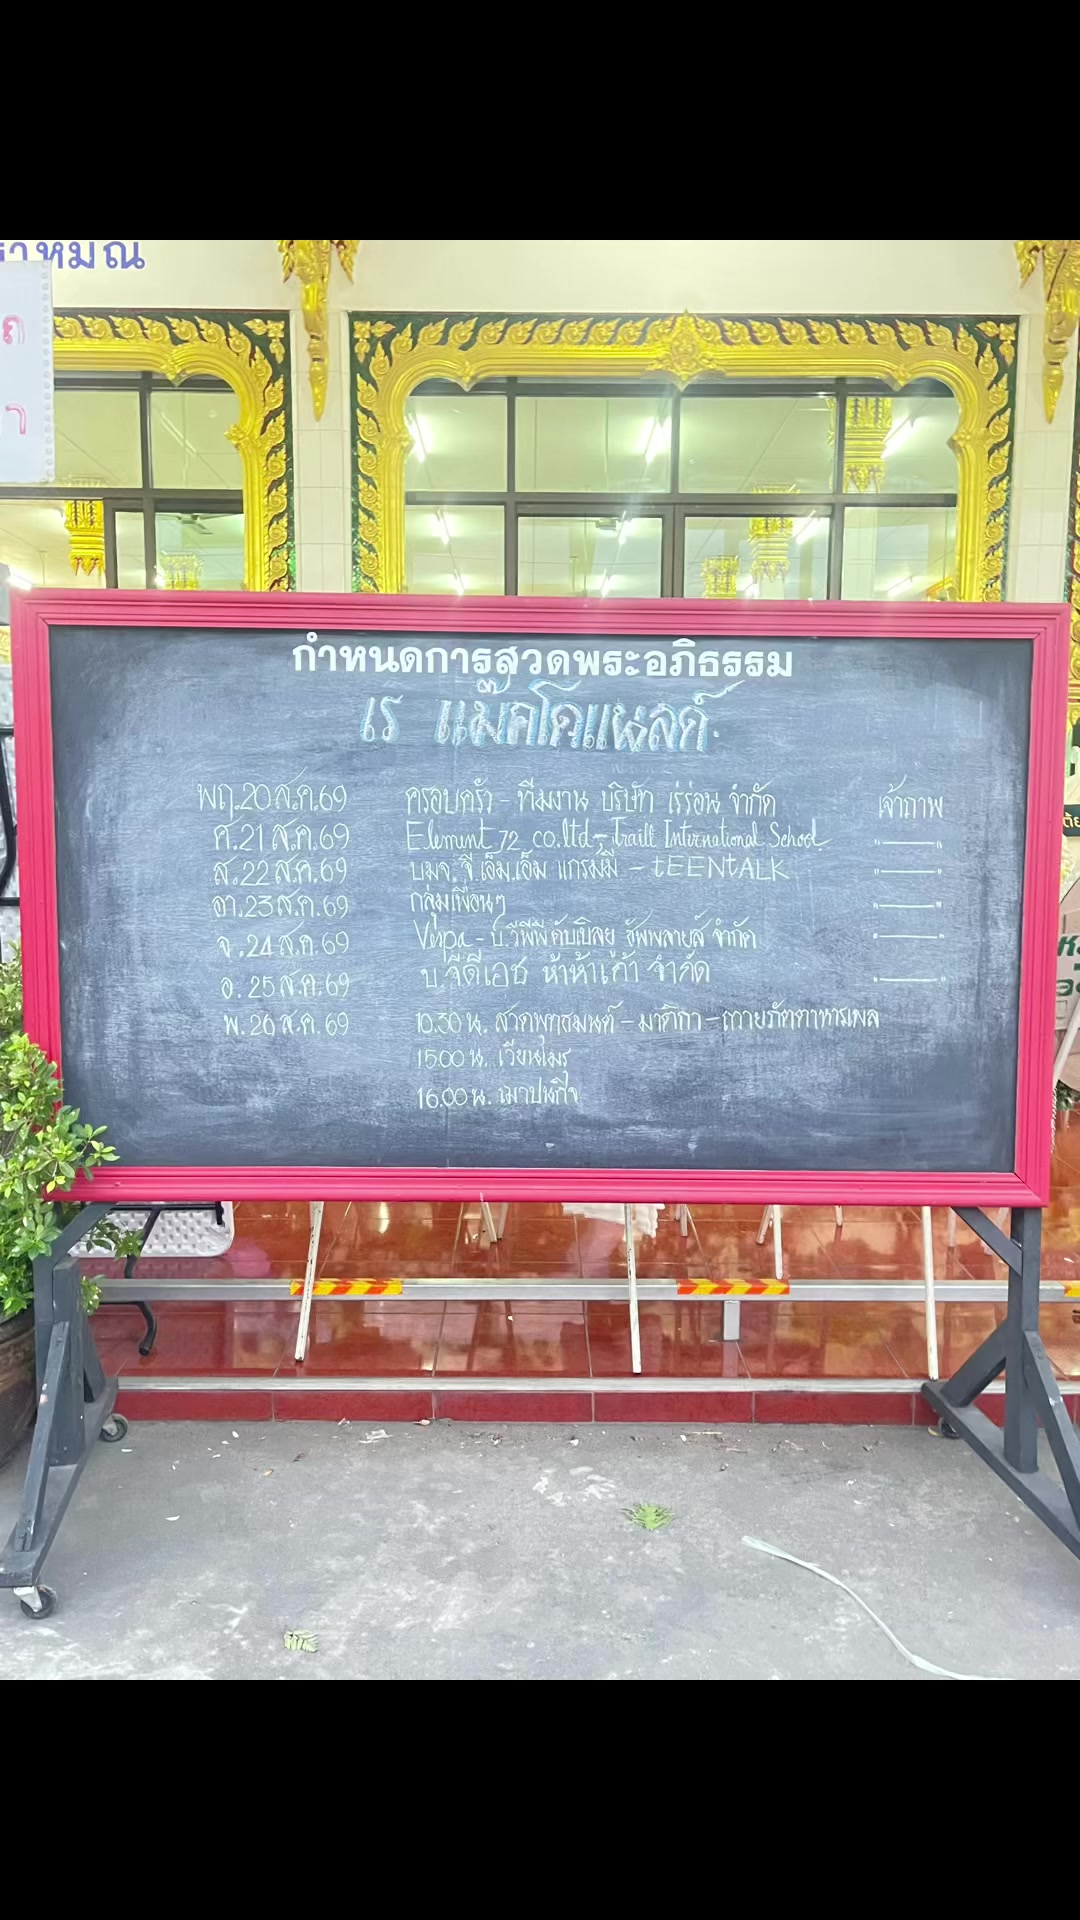 าหมณ
กำหนดการสวดพระอภิธรรม
เร แม๊คโดแนลด์
พฤ.20 ส.ค.69 ครอบครัว - ทีมงาน บริษัท เร่ร่อน จำกัด เจ้าภาพ
ศ.21 ส.ค.69 Element 72 co.ltd - Traill International School —"—
ส.22 ส.ค.69 บมจ.จี.เอ็ม.เอ็ม แกรมมี่ - tEENtALK —"—
อา.23 ส.ค.69 กลุ่มเพื่อนๆ —"—
จ.24 ส.ค.69 Vespa - บ.วีพีพี ดับเบิลยู ซัพพลายส์ จำกัด —"—
อ.25 ส.ค.69 บ.จีดีเอช ห้าห้าเก้า จำกัด —"—
พ.26 ส.ค.69 10.30 น. สวดพุทธมนต์ - มาติกา - ถวายภัตตาหารเพล
15.00 น. เวียนเมรุ
16.00 น. ฌาปนกิจ